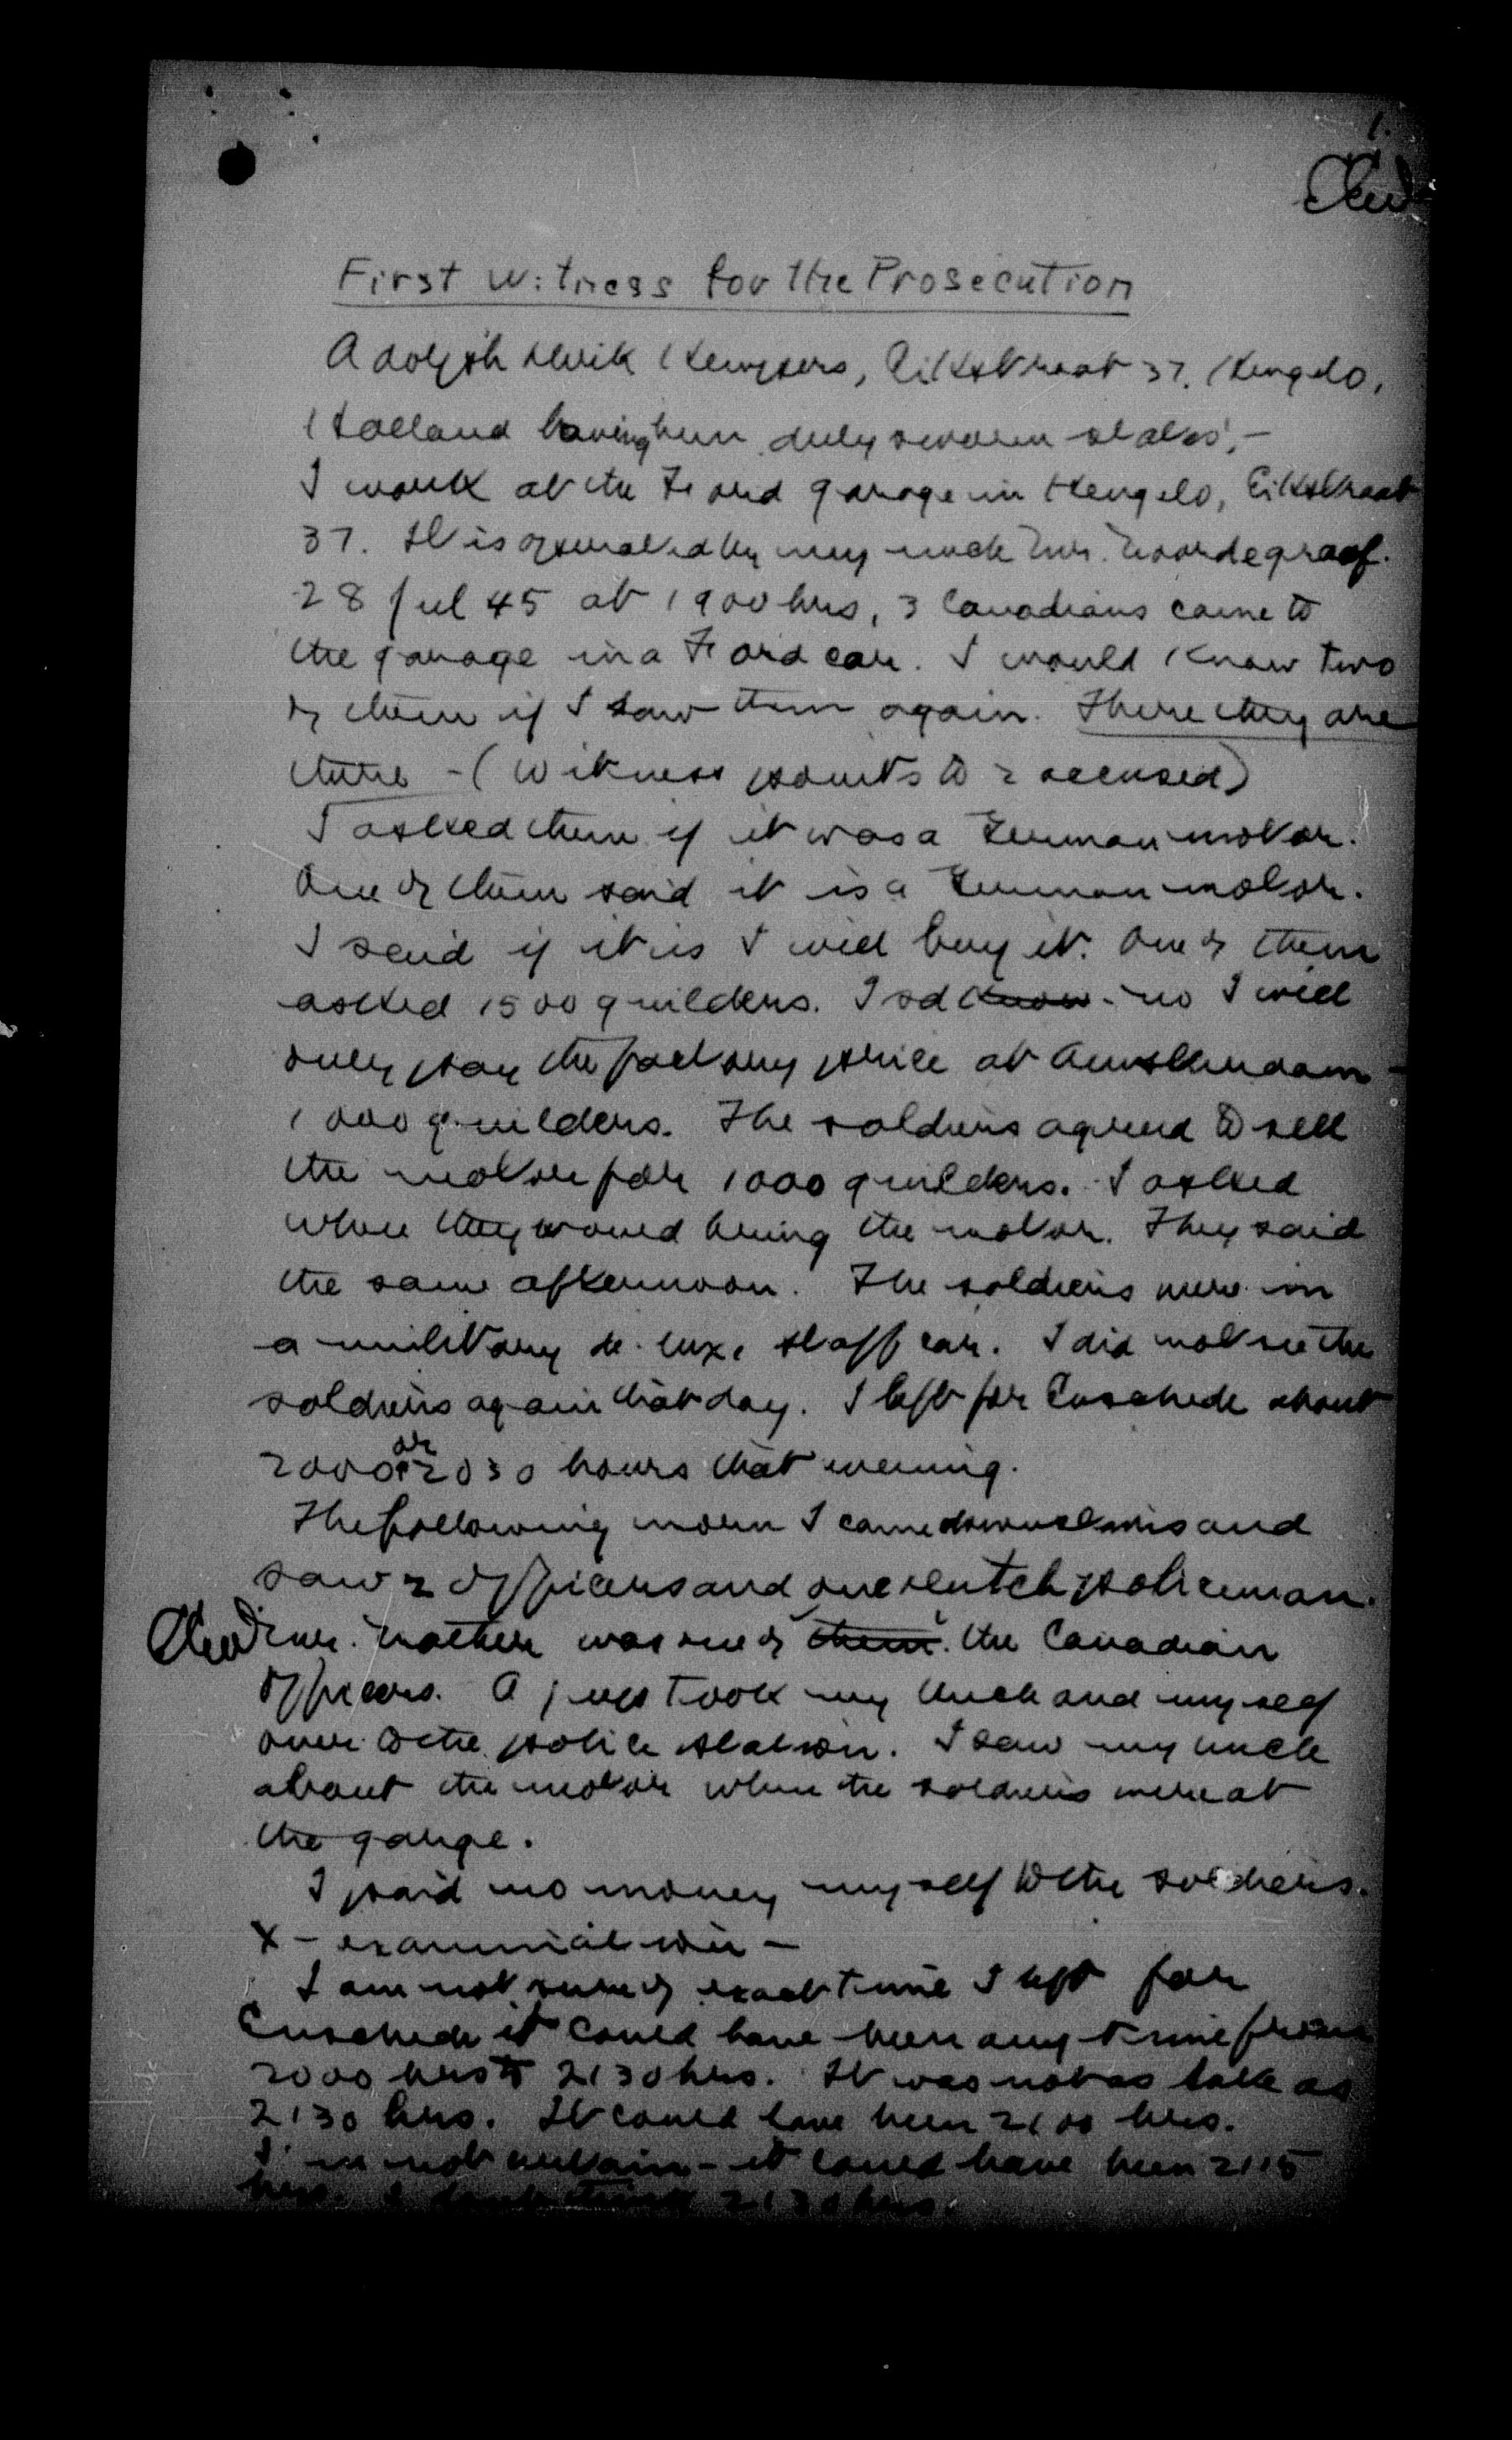 1.
First Witness for the Prosecution
Adolph Kempers, Eikstraat 37. Hengelo,
Holland having been duly sworn states:-
I work at the Ford garage in Hengelo, Eikstraat
37. It is operated by my uncle Mr. Noordegraaf.
28 Jul 45 at 1900 hrs, 3 Canadians came to
the garage in a Ford car. I would know two
of them if I saw them again. There they are
there - (Witness points to 2 accused)
I asked them if it was a German motor.
One of them said it is a German motor.
I said if it is I will buy it. One of them
asked 1500 guilders. I sd know - no I will
only pay the factory price at Amsterdam -
1000 guilders. The soldiers agreed to sell
the motor for 1000 guilders. I asked
when they would bring the motor. They said
the same afternoon. The soldiers were in
a military de luxe staff car. I did not see the
soldiers again that day. I left for Enschede about
2000 or 2030 hours that evening.
The following morn I came downstairs and
saw 2 officers and one Dutch policeman.
Mr. was one of them. the Canadian
officers. A jeep took my uncle and myself
over to the police station. I saw my uncle
about the motor when the soldiers were at
the garage.
I paid no money myself to the soldiers.
X - examination -
I am not sure of exact time I left for
Enschede it could have been any time from
2000 hrs to 2130 hrs. It was not as late as
2130 hrs. It could have been 2100 hrs.
I'm not certain - it could have been 2115
hrs. I don't think 2130 hrs.